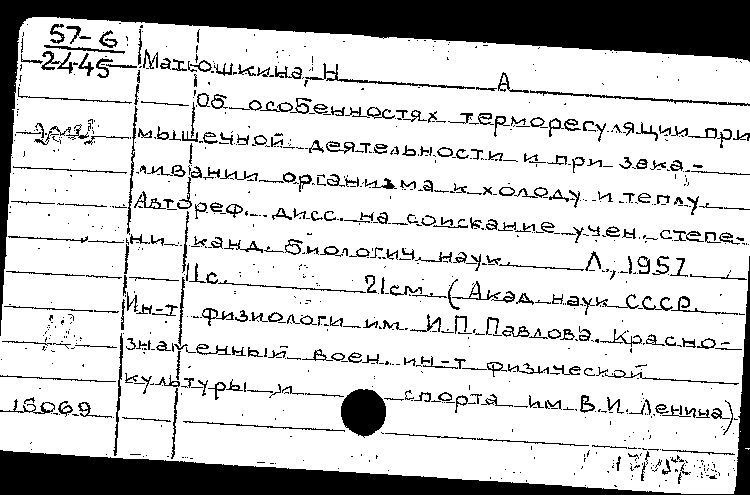 57-6
2445
Матюшкина, Н А
Об особенностях терморегуляции при
мышечной деятельности и при зака-
ливании организма к холоду и теплу.
Автореф. дисс. на соискание учен. степе-
ни канд. биологич. наук. Л., 1957.
11с. 21см. (Акад. наук СССР.
Ин-т физиологи им. И.П. Павлова. Красно-
знаменный воен. ин-т физической
культуры и спорта им В.И. Ленина)
15069